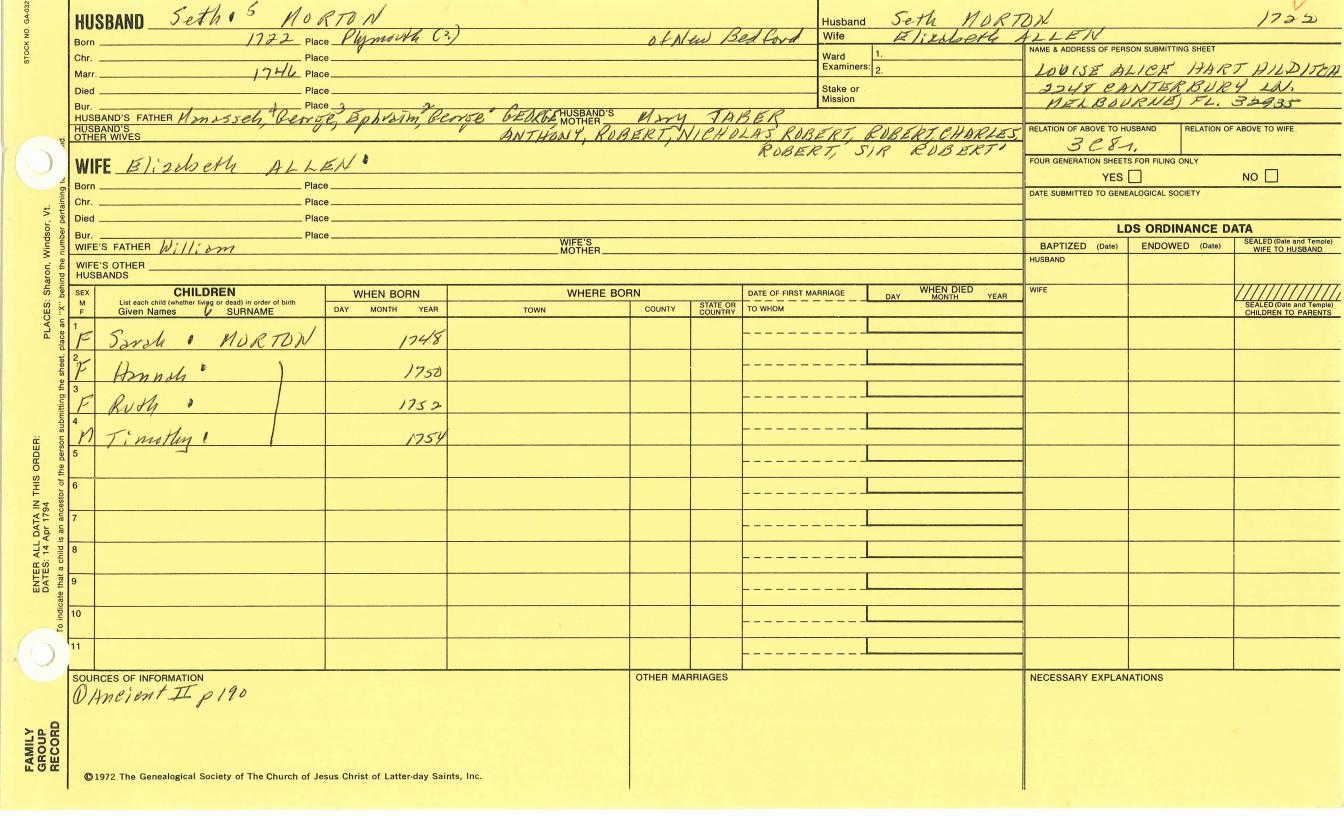 STOCK NO. GA-032
HUSBAND Seth 5 MORTON
Born 1722 Place Plymouth (?) of New Bedford
Chr. Place
Marr. 1746 Place
Died Place
Bur. Place
HUSBAND'S FATHER Manasseh, 4 George, 3 Ephraim, 2 George 1 GEORGE HUSBAND'S MOTHER Mary TABER
HUSBAND'S OTHER WIVES ANTHONY, ROBERT, NICHOLAS, ROBERT, ROBERT, CHARLES,
ROBERT, SIR ROBERT
WIFE Elizabeth ALLEN
Born Place
Chr. Place
Died Place
Bur. Place
WIFE'S FATHER William WIFE'S MOTHER
WIFE'S OTHER HUSBANDS
Husband Seth MORTON 1722
Wife Elizabeth ALLEN
Ward Examiners: 1.
2.
Stake or Mission
NAME & ADDRESS OF PERSON SUBMITTING SHEET
LOUISE ALICE HART HILDITCH
2248 CANTERBURY LN.
MELBOURNE, FL. 32935
RELATION OF ABOVE TO HUSBAND RELATION OF ABOVE TO WIFE
3C8r.
FOUR GENERATION SHEETS FOR FILING ONLY
YES NO
DATE SUBMITTED TO GENEALOGICAL SOCIETY
LDS ORDINANCE DATA
BAPTIZED (Date) ENDOWED (Date) SEALED (Date and Temple) WIFE TO HUSBAND
HUSBAND
WIFE
SEALED (Date and Temple) CHILDREN TO PARENTS
SEX M F
CHILDREN
List each child (whether living or dead) in order of birth
Given Names SURNAME
WHEN BORN
DAY MONTH YEAR
WHERE BORN
TOWN COUNTY STATE OR COUNTRY
DATE OF FIRST MARRIAGE
TO WHOM
WHEN DIED
DAY MONTH YEAR
1 F Sarah MORTON 1748
2 F Hannah 1750
3 F Ruth 1752
4 M Timothy 1754
5
6
7
8
9
10
11
SOURCES OF INFORMATION
① Ancient II p 190
OTHER MARRIAGES
NECESSARY EXPLANATIONS
©1972 The Genealogical Society of The Church of Jesus Christ of Latter-day Saints, Inc.
FAMILY GROUP RECORD
ENTER ALL DATA IN THIS ORDER:
DATES: 14 Apr 1794
PLACES: Sharon, Windsor, Vt.
To indicate that a child is an ancestor of the person submitting the sheet, place an "X" behind the number pertaining